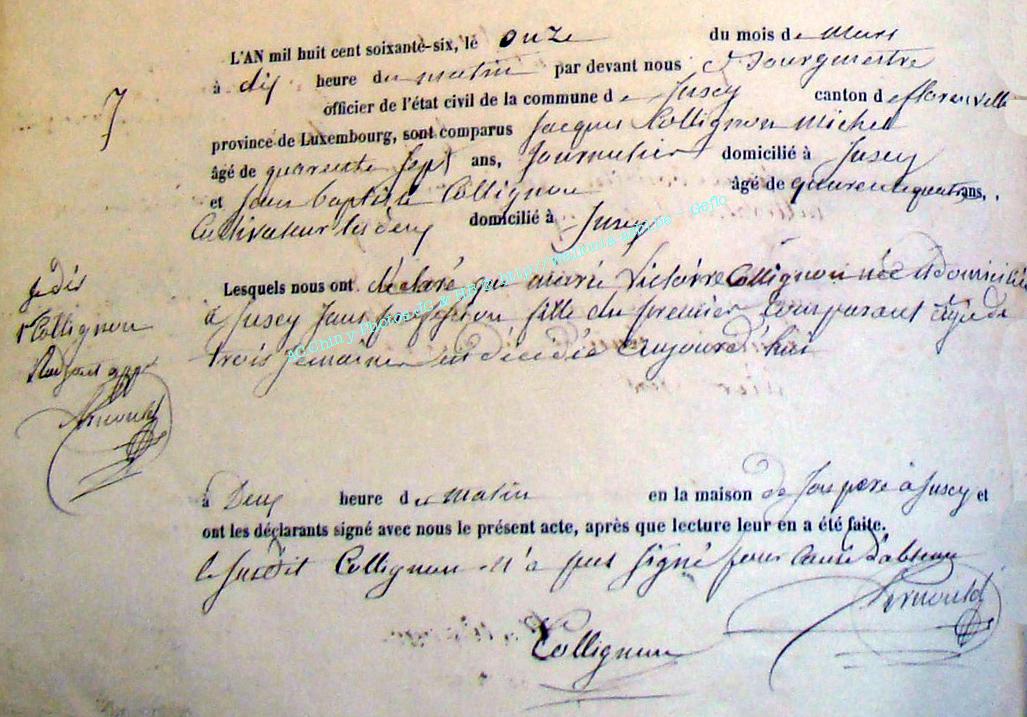 L'AN mil huit cent soixante-six, le onze du mois de mars
7
à dix heure du matin par devant nous Bourgmestre
officier de l'état civil de la commune de Jusey canton de florenville
province de Luxembourg, sont comparus Jacques Collignon Michel
âgé de quarente sept ans, Journalier domicilié à Jusey
et Jean baptiste Collignon âgé de quarente quatre ans,
Cultivateur les deux domicilié à Jusey
Lesquels nous ont déclaré que marie Victoire Collignon née et domiciliée
à Jusey sans profession fille du premier Comparant âgée de
trois semaines est décédée aujourd'hui
Collignon
Arnould
à Deux heure de matin en la maison de son père à Jusey et
ont les déclarants signé avec nous le présent acte, après que lecture leur en a été faite.
le sudit Collignon n'a pas signé pour cause d'absence
Arnould
Collignon